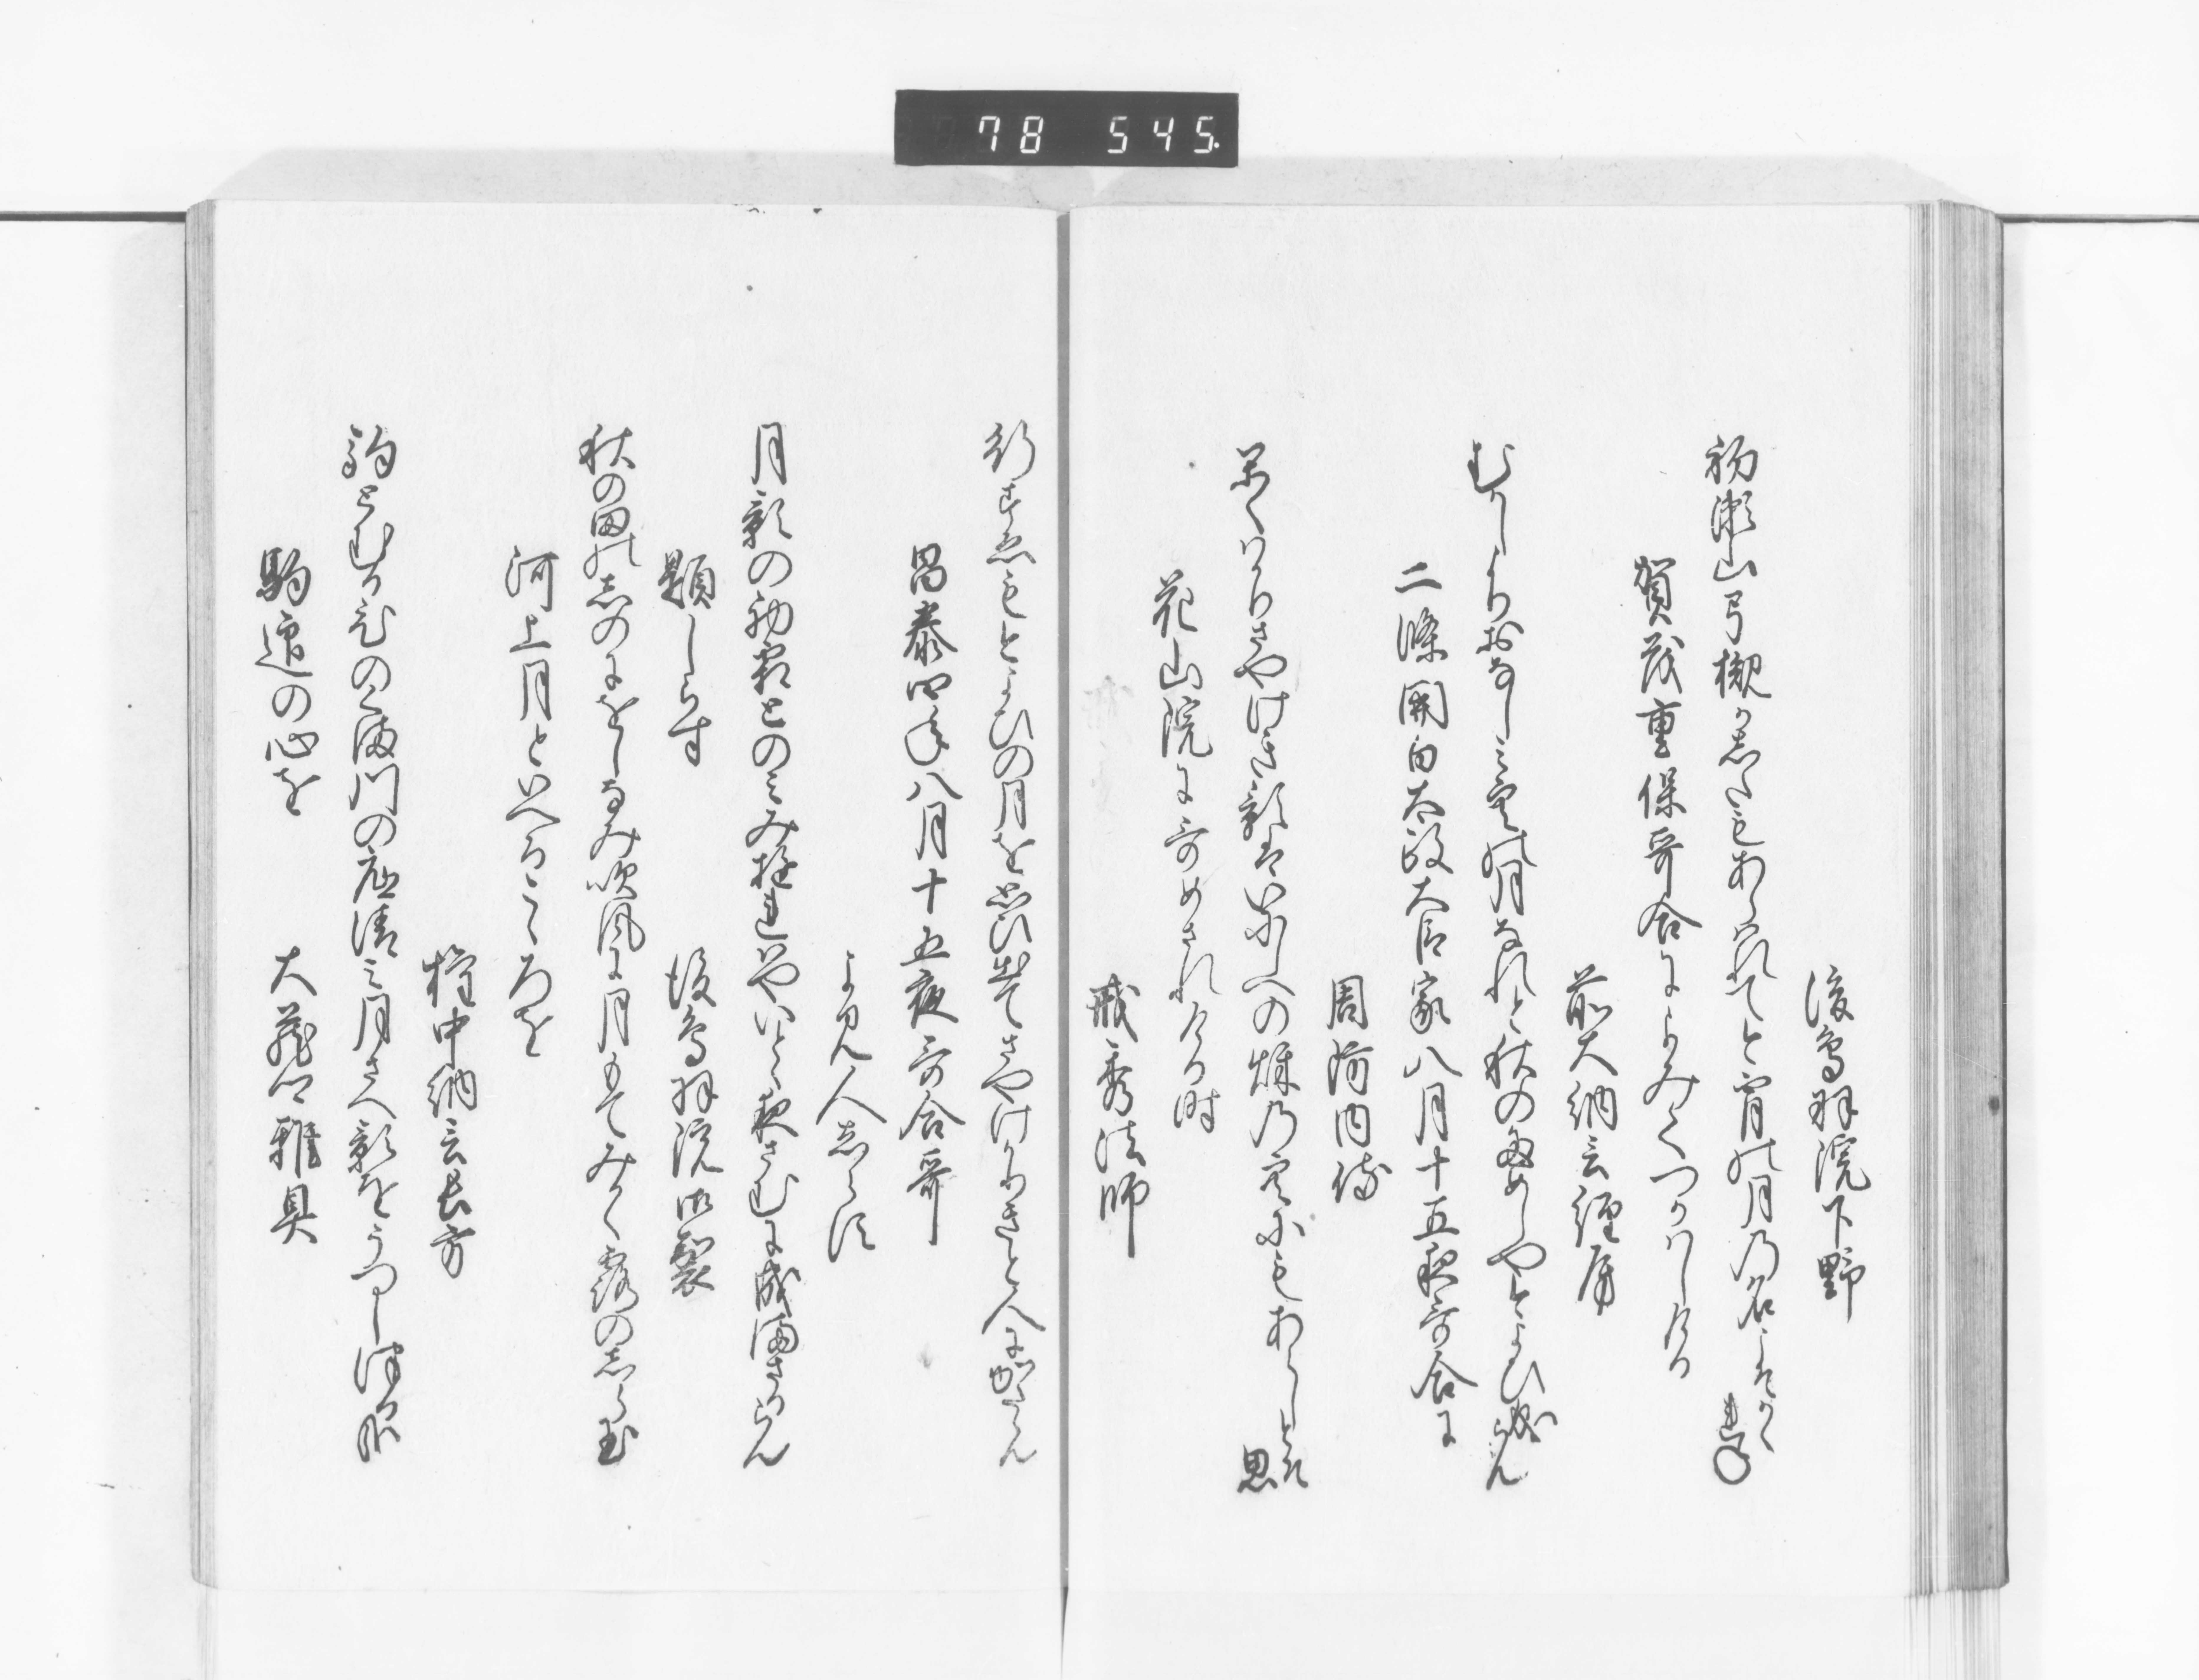 78 545.
後鳥羽院下野
初瀬山弓槻か志たもあらはれてと宵の月の名こそかくれね
賀茂重保哥合によみてつかはしける
前大納言経房
むかしよりおなしみ空の月なれと秋の
二條関白太政大臣家八月十五夜哥合に
周防内侍
さやけき影はいにしへの
花山院に哥めされける時
戒秀法師
行すゑもとよひの月を思ひ出てさやけかりきと人にかたらん
昌泰四年八月十五夜哥合哥
よみ人志らす
月影の初霜とのみみゆれはやいとゝ夜さむに成まさるらん
題しらす
後鳥羽院御製
秋の田の志のにをしなみ吹風に月もてみかく露の志ら玉
河上月といへるこゝろを
権中納言長方
駒とむるひのくま川の底清み月さへ影をうつしつるかな
駒迎の心を
大蔵卿雅具